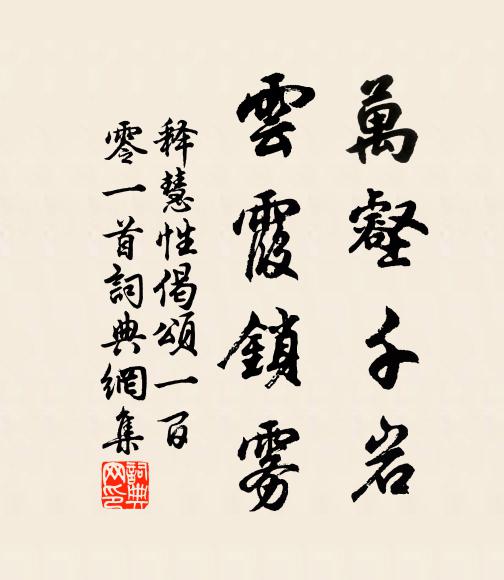 萬壑千岩
雲霞鎖雾
释慧性偈頌一百
零一首詞典網集
詞典网印